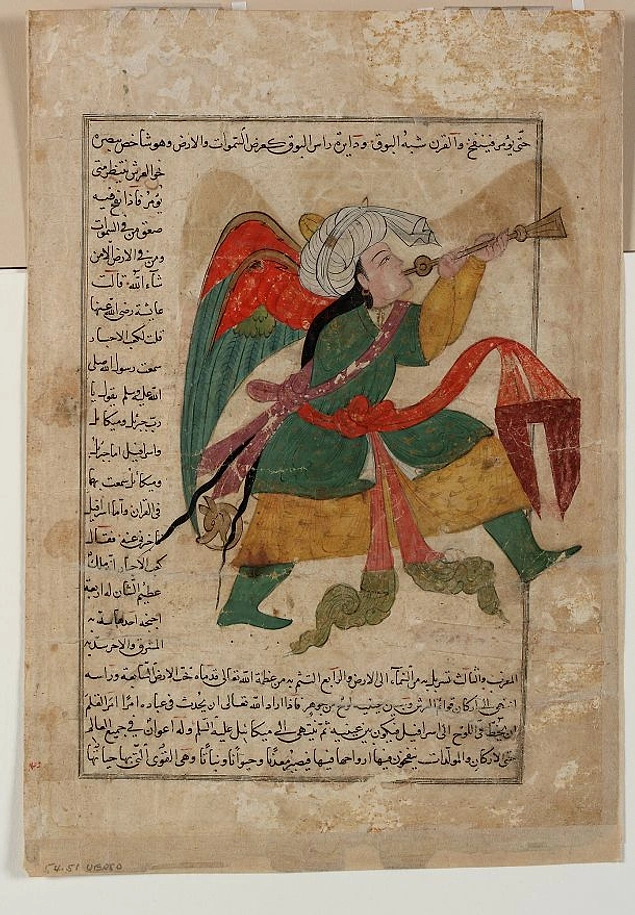 حتى يؤمر فينفخ والقرن شبه البوق ودايرة راس البوق كعرض السموات والارض وهو شاخص ببصره
نحو العرش ينتظر متى
يؤمر فاذا نفخ فيه
صعق من في السموات
ومن في الارض الا من
شاء الله قالت
عايشة رضي الله عنها
قلت لكعب الاحبار
سمعت رسول الله صلى
الله عليه وسلم يقول يا
رب جبرئل وميكائل
واسرافيل اما جبرئل
وميكائل سمعت بهما
في القرآن واما اسرافيل
فاخبرني عنه فقال
كعب الاحبار انه ملك
عظيم الشان له اربعة
اجنحة احدها سد به
المشرق والاخر سد به
المغرب والثالث تسربل به من السماء الى الارض والرابع التثم به من عظمة الله تعالى قدماه تحت الارض السابعة وراسه
انتهى الى اركان قوايم العرش وبين عينيه لوح من جوهر فاذا اراد الله تعالى ان يحدث في عباده امرا امر القلم
ان يخط في اللوح الى اسرافيل فيكون بين عينيه ثم ينتهى الى ميكائيل عليه السلم وله اعوان في جميع العالم
حتى الاركان والمولدات ينفخون فيها ارواحها فيها فيصير معدنا وحيوانا ونباتا وهى القوى التي بها حياتها
54.51